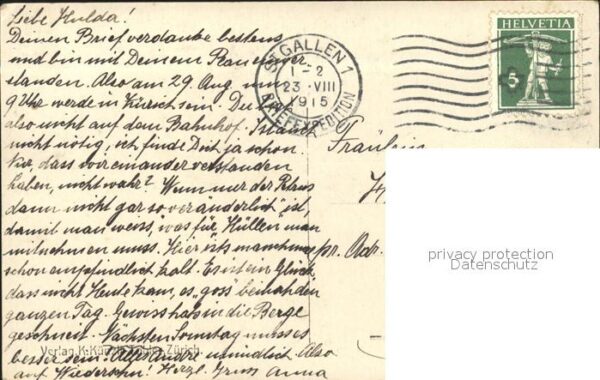 Liebe Hulda!
Deinen Brief verdanke bestens
und bin mit Deinem Plan einver
standen. Also am 29. Aug. um
9 Uhr werde in Zürich sein. Du
also nicht auf dem Bahnhof.
nicht nötig, ich finde Dich ja schon.
dass wir einander verstanden
haben, nicht wahr? Wenn nur der Petrus
dann nicht gar so „veränderlich" ist,
damit man weiss, was für Hüllen man
mitnehmen muss. Hier ists manchmal
schon empfindlich kalt. Es ist ein Glück,
dass nicht Heute kam, es „goss" beinah den
ganzen Tag. Gewiss hats in die Berge
geschneit. Nächsten Sonntag muss es
besser sein! Alles Andre mündlich. Also
auf Wiedersehn! Herzl. Gruss Anna
ST. GALLEN 1
1-2
23. VIII
1915
BRIEFEXPEDITION
HELVETIA
5
Fräulein
pr. Adr.
privacy protection
Datenschutz
Verlag Zürich.